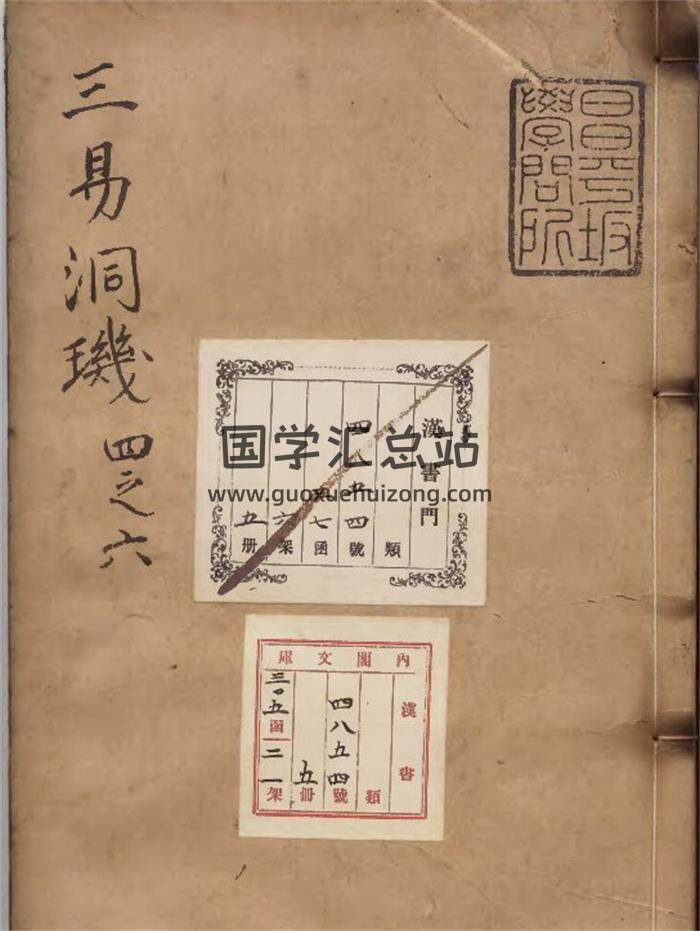 三易洞璣 四之六
昌平坂
學問所
国学汇总站
www.guoxuehuizong.com
漢書門
類
四八五四號
七函
六架
五册
內閣文庫
漢書
類
四八五四號
五冊
三〇五函
二一架